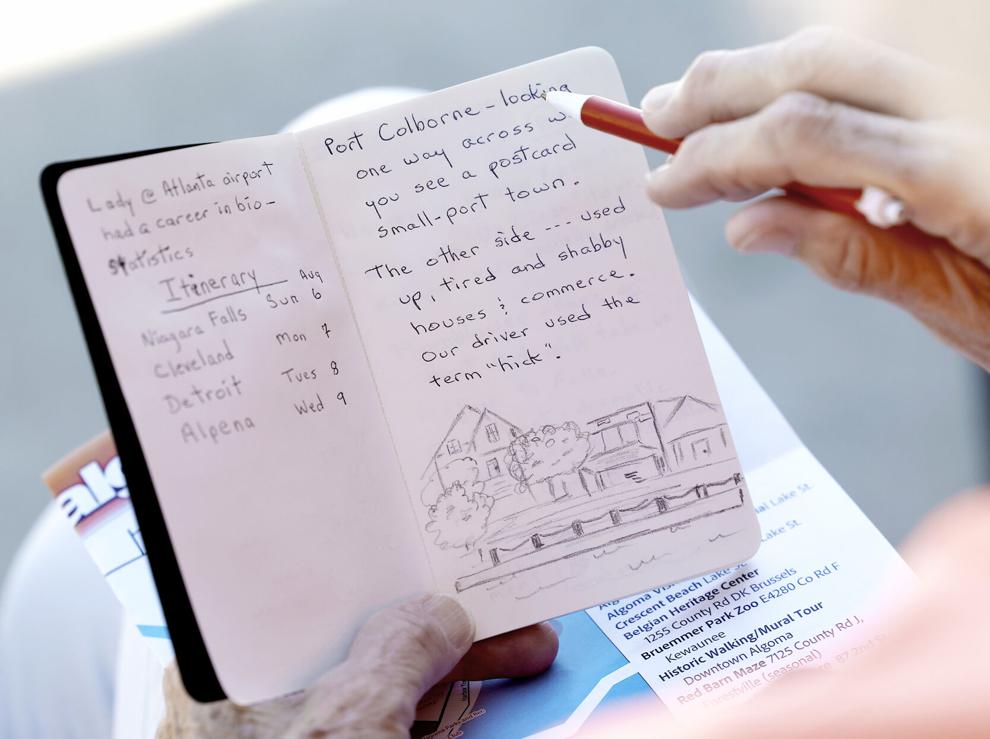 Lady @ Atlanta airport
had a career in bio-
statistics
Itinerary Aug
Niagara Falls Sun 6
Cleveland Mon 7
Detroit Tues 8
Alpena Wed 9
Port Colborne - looking
one way across
you see a postcard
small-port town.
The other side --- used
up, tired and shabby
houses & commerce.
Our driver used the
term "hick".
Lake St.
Lake St.
Algoma
Crescent Beach Lake St.
Belgian Heritage Center
1255 County Rd DK Brussels
Bruemmer Park Zoo E4280 Co Rd F
Kewaunee
Historic Walking/Mural Tour
Downtown Algoma
Red Barn Maze 7125 County Rd J,
Forestville (seasonal)